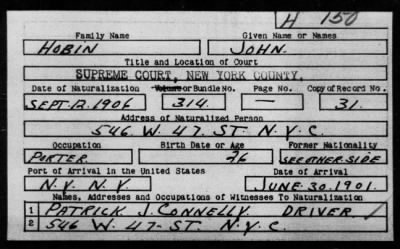 H 150
Family Name Given Name or Names
HOBIN JOHN.
Title and Location of Court
SUPREME COURT, NEW YORK COUNTY.
Date of Naturalization Volume or Bundle No. Page No. Copy of Record No.
SEPT-12.1906 314. — 31.
Address of Naturalized Person
546 W. 47. ST N.Y.C.
Occupation Birth Date or Age Former Nationality
PORTER 26 SEE OTHER SIDE
Port of Arrival in the United States Date of Arrival
N.Y. N.Y JUNE.30.1901.
Names, Addresses and Occupations of Witnesses To Naturalization
1 PATRICK J. CONNELLY DRIVER
2 546 W. 47-ST N.Y.C.